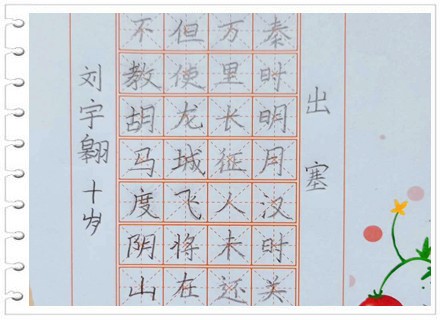 出塞
秦时明月汉时关
万里长征人未还
但使龙城飞将在
不教胡马度阴山
刘宇翱 十岁